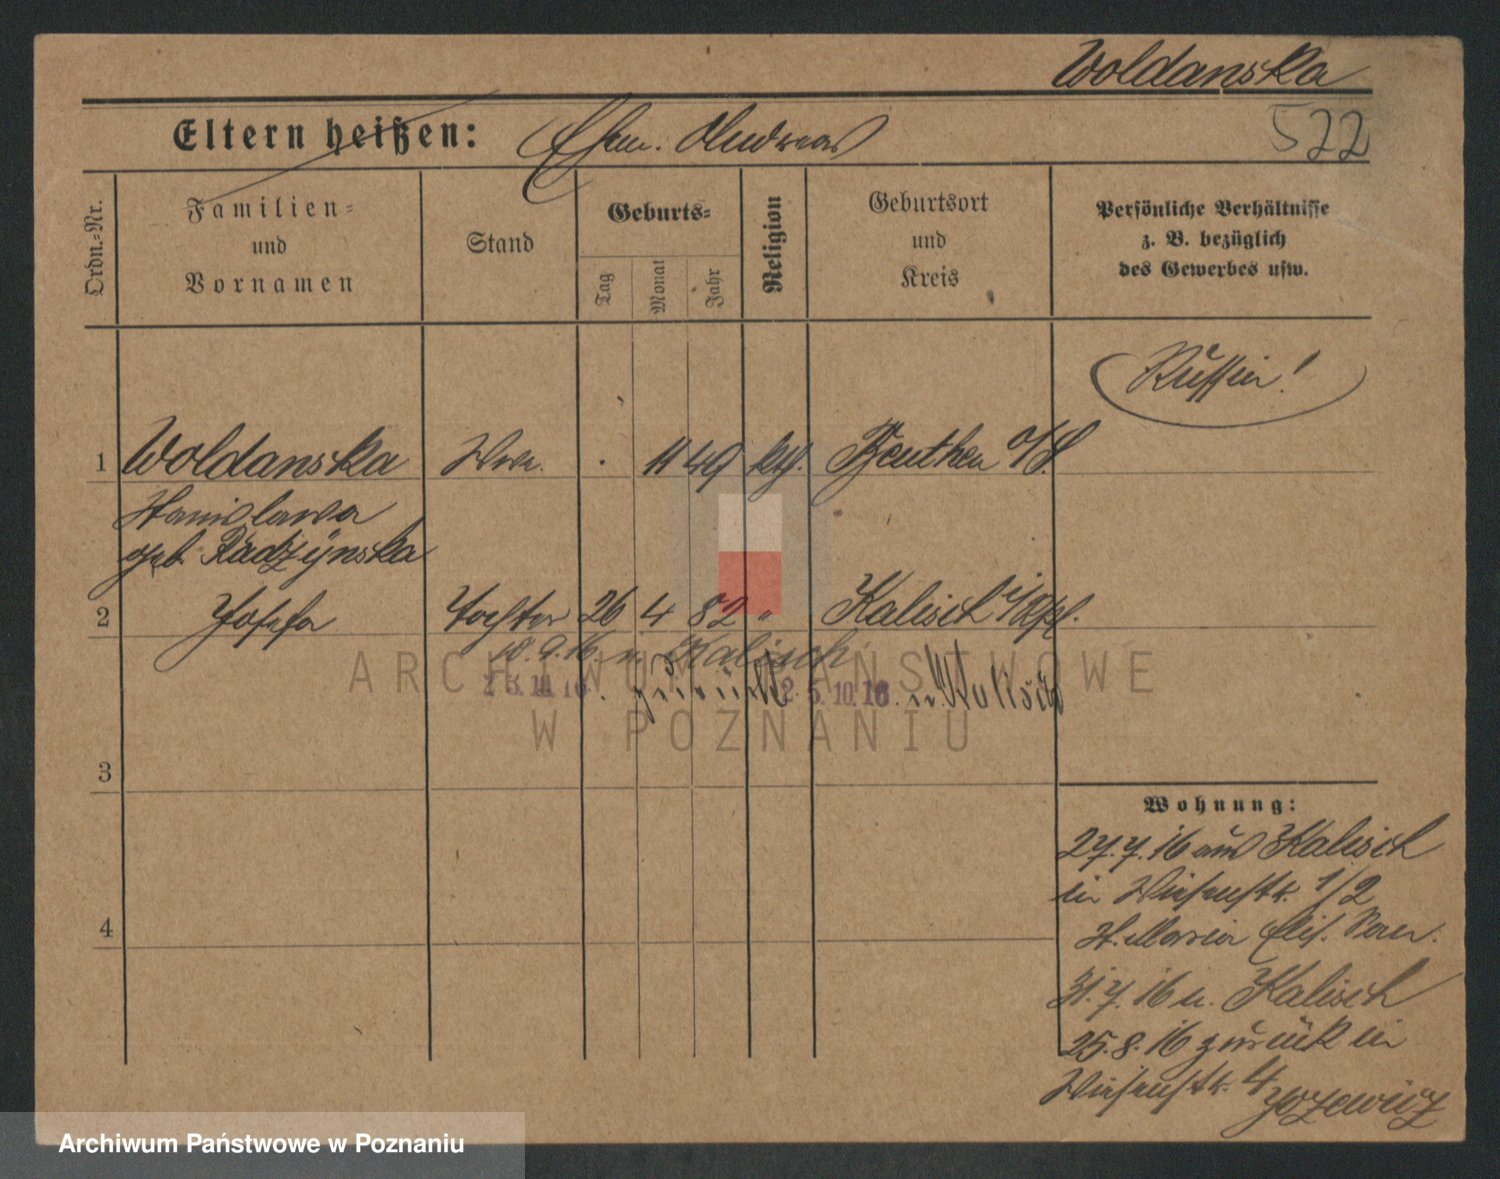 Woldanska
522
Eltern heißen: Ehem. Andreas
Ordn.-Nr.
Familien-
und
Vornamen
Stand
Geburts-
Tag
Monat
Jahr
Religion
Geburtsort
und
Kreis
Persönliche Verhältnisse
z. B. bezüglich
des Gewerbes usw.
Russin!
1 Woldanska Wwe. 11 49 kth. Beuthen O/S
Stanislawa
geb. Radzÿnska
2 Josefa Tochter 26 4 82 " Kalisch
18.9.16 n. Kalisch
23.10.16. zurück 25.10.16. n. Kalisch
3
4
Wohnung:
27.7.16 aus Kalisch
in Wiesenstr. 1/2
H. Maria
31.7.16 n. Kalisch
25.8.16 zurück in
Wiesenstr. 4
ARCHIWUM PAŃSTWOWE
W POZNANIU
Archiwum Państwowe w Poznaniu